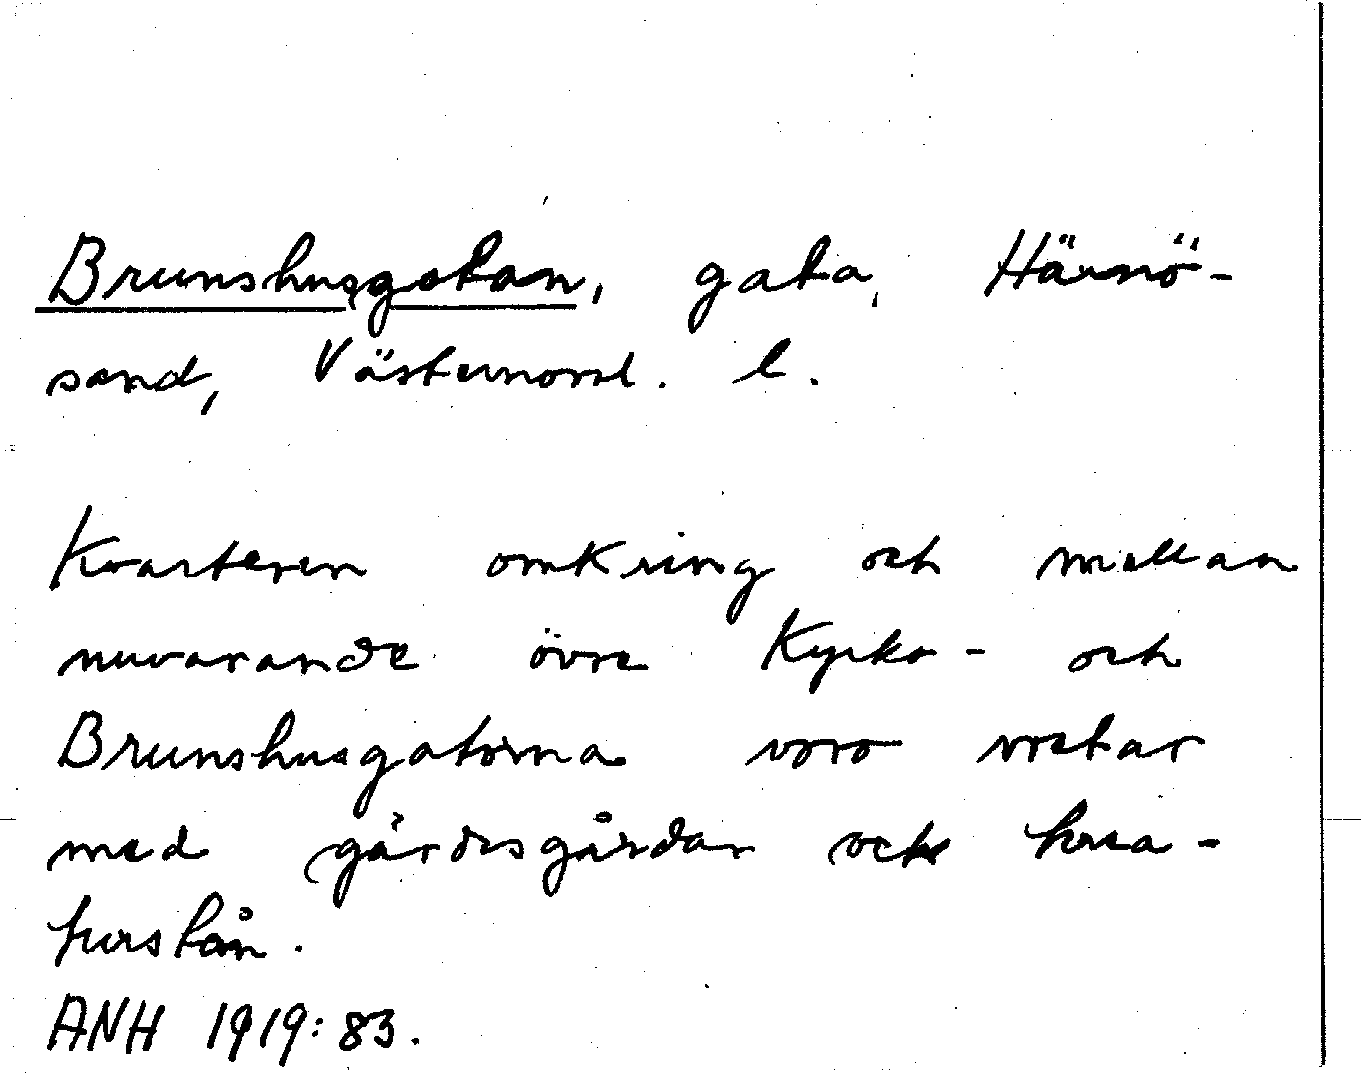 Brunshusgatan, gata, Härnö-
sand, Västernorrl. l.
Kvarteren omkring och mellan
nuvarande övre Kyrko- och
Brunshusgatorna voro vretar
med gärdesgårdar och
ANH 1919:83.